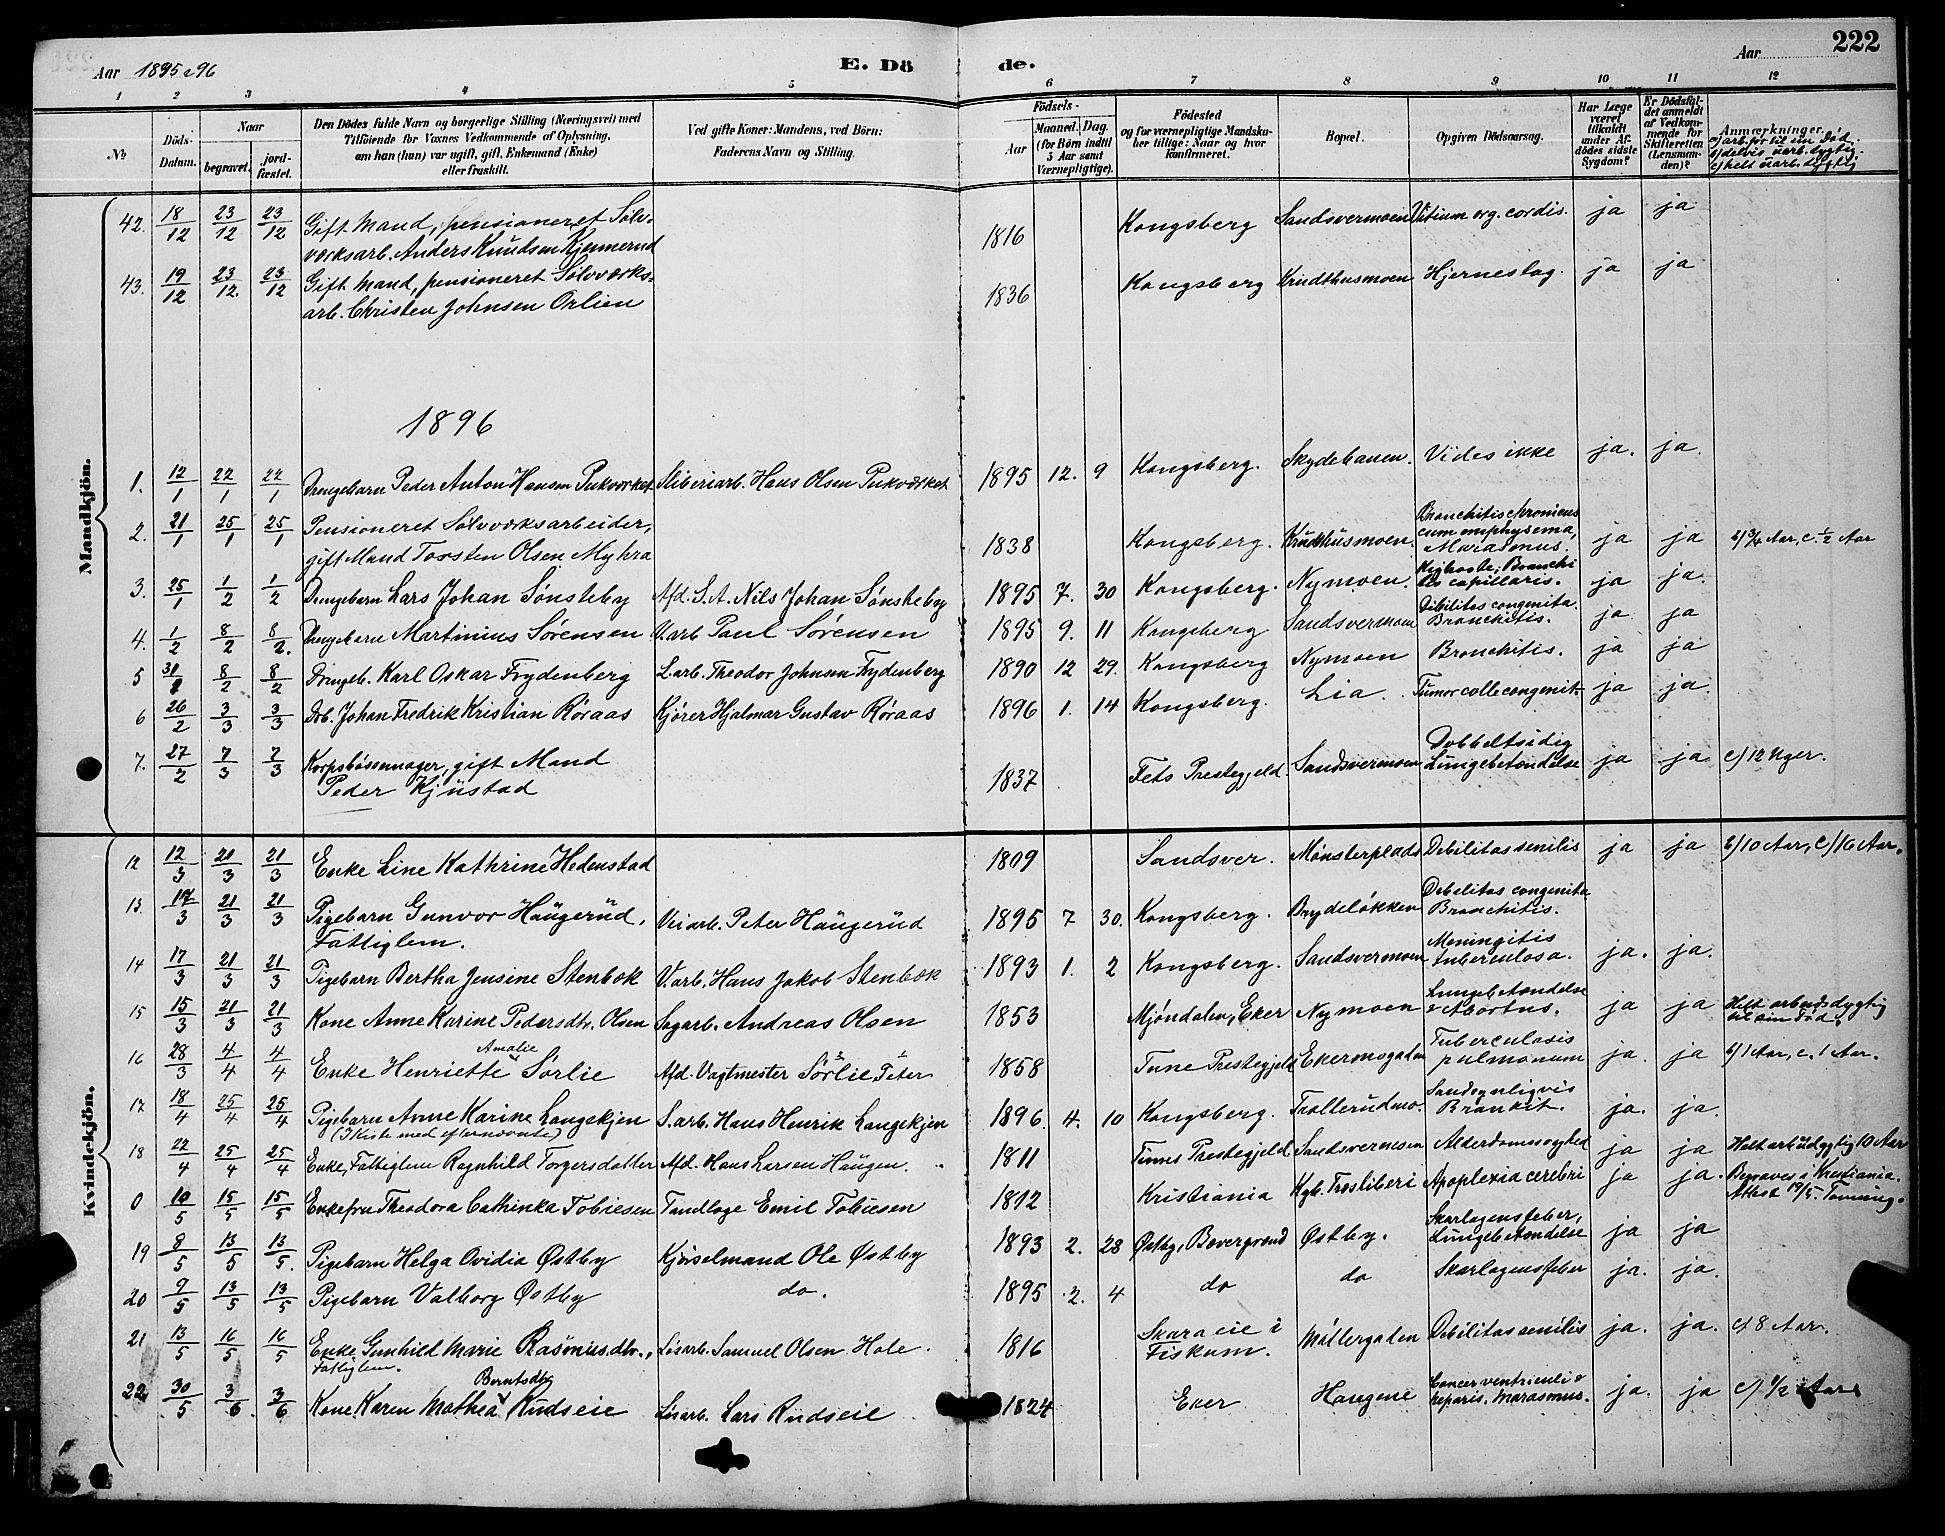 Aar 1895 & 96
E. Dö
de.
Aar
222
1 2 3 4 5 6 7 8 9 10 11 12
No
Döds-Datum.
Naar
begravet.
jord-fæstet.
Den Dödes fulde Navn og borgerlige Stilling (Næringsvei) med
Tilföiende for Voxnes Vedkommende af Oplysning,
om han (hun) var ugift, gift, Enkemand (Enke)
eller fraskilt.
Ved gifte Koner: Mandens, ved Börn:
Faderens Navn og Stilling.
Födsels-
Aar
Maaned. Dag.
(for Börn indtil
5 Aar samt
Værnepligtige).
Födested
og for værnepligtige Mandsku-
ber tillige: Naar og hvor
konfirmeret.
Bopæl.
Opgiven Dödsaarsag.
Har Læge
været
tilkaldt
under Af-
dödes sidste
Sygdom?
Er Dödsfal-
det anmeldt
af Vedkom-
mende for
Skifteretten
(Lensman-
den)?
Anmærkninger.
a) arb.før til sin Død.
b) delvis uarb.dygtig.
c) helt uarb.dygtig
Mandkjön.
42. 18/12 23/12 23/12 Gift Mand, pensioneret Sølv- 1816 Kongsberg Sandsvermoen Vitium org. cordis. ja ja
værksarb. Anders Knudsen Kjennerud
43. 19/12 23/12. 23/12 Gift Mand, pensioneret Sølvværks- 1836 Kongsberg Krudthusmoen Hjerneslag. ja ja
arb. Christen Johnsen Orlien
1896
1. 12/1 22/1 22/1 Drengebarn Peder Anton Hansen Pukværket Stiberiarb. Hans Olsen Pukværket 1895 12. 9 Kongsberg. Skydebanen. Vides ikke ja. ja.
2. 21/1 25/1 25/1 Pensioneret Sølvværksarbeider, 1838 Kongsberg. Krudthusmoen. Bronchitis chronicus
cum emphysema,
Marasmus. ja ja b) 3/4 Aar, c. 1/2 Aar
gift Mand Torsten Olsen Myhra
3. 25/1 1/2 1/2 Drengebarn Lars Johan Sønsteby Afd. S. A. Nils Johan Sønsteby 1895 7. 30 Kongsberg. Nymoen. Kighoste, Bronchi
tis capillaris. ja ja.
4. 1/2 8/2 8/2. Drengebarn Martinius Sørensen V.arb. Paul Sørensen 1895 9. 11 Kongsberg Sandsvermoen Debilitas congenita.
Bronchitis. ja ja
5 31/1 8/2 8/2 Drengeb. Karl Oskar Frydenberg L.arb. Theodor Johnsen Frydenberg 1890 12 29. Kongsberg Nymoen Bronchitis. ja ja
6 26/2 3/3 3/3 Drb. Johan Fredrik Kristian Røraas Kjører Hjalmar Gustav Røraas 1896 1. 14 Kongsberg. Lia. Tumor colle congenit. ja ja.
7. 27/2 7/3 7/3 Korpsbøssemager, gift Mand 1837 Fets Prestegjeld. Sandsvermoen Dobbeltsidig
Lungebetændelse ja ja c) 12 Uger.
Peder Kjustad
Kvindekjön.
12 12/3 21/3 21/3 Enke Line Kathrine Hedenstad 1809 Sandsver. Mønsterplads Debilitas senilis ja ja b) 10 Aar, c) 16 Aar.
13. 17/3 21/3 21/3 Pigebarn Gunvor Haugerud, Veiarb. Peter Haugerud 1895 7 30. Kongsberg. Brydeløkken Debilitas congenita
Bronchitis.
Fattiglem.
14 17/3 21/3 21/3 Pigebarn Bertha Jensine Stenbæk V.arb. Hans Jakob Stenbæk 1893 1. 2 Kongsberg. Sandsvermoen Meningitis
tuberculosa. ja. ja.
15 15/3 21/3 21/3 Kone Anne Karine Pedersdtr. Olsen Sagarb. Andreas Olsen 1853 Mjøndalen, Eker Nymoen Lungebetændelse
& Abortus. ja ja Helt arbeidsdygtig
til sin Død.
16 28/3 4/4 4/4 Enke Henriette Amalie Sørlie Afd. Vagtmester Sørlie Peter 1858 Tune Prestegjeld Ekermogaden Tuberculosis
pulmonum ja. ja b) 1 Aar, c. 1 Aar.
17 18/4 25/4 25/4 Pigebarn Anne Karine Langekjen S.arb. Hans Henrik Langekjen 1896. 4. 10 Kongsberg. Trollerudmo. Sandsynligvis
Bronkit. ja. ja.
(I Kiste med efternævnte)
18 22/4 25/4 25/4 Enke, Fattiglem Ragnhild Torgersdatter Afd. Hans Larsen Haugen. 1811 Tinns Prestegjeld Sandsvermoen Alderdomssvaghed ja ja Helt arbudygtig 10 Aar
0 10/5 15/5 15/5 Enkefru Theodora Cathinka Tobiesen Tandlæge Emil Tobiesen 1812 Kristiania Kgb. Træsliberi Apoplexia cerebri ja ja. Begraves i Kristiania.
Attest 19/5.
19 8/5 13/5 13/5. Pigebarn Helga Ovidia Østby Kjørselmand Ole Østby 1893 2. 28 Østby, Bævergrænd Østby. Skarlagensfeber,
Lungebetændelse ja ja
20 9/5 13/5 13/5 Pigebarn Valborg Østby do. 1895 2. 4 do do Skarlagensfeber ja. ja.
21 13/5 16/5 16/5 Enke Gunhild Marie Rasmusdtr., Løsarb. Samuel Olsen Hole. 1816 Skara eie i
Fiskum. Møllergaden Debilitas senilis ja. ja. c) 8 Aar.
Fattiglem.
22. 30/5 3/6 3/6 Kone Karen Mathea Berntsdtr Rudseie Løsarb. Lars Rudseie 1824 Eker Haugene Cancer ventriculi &
heparis. Marasmus. ja. ja c) 1/2 Aar